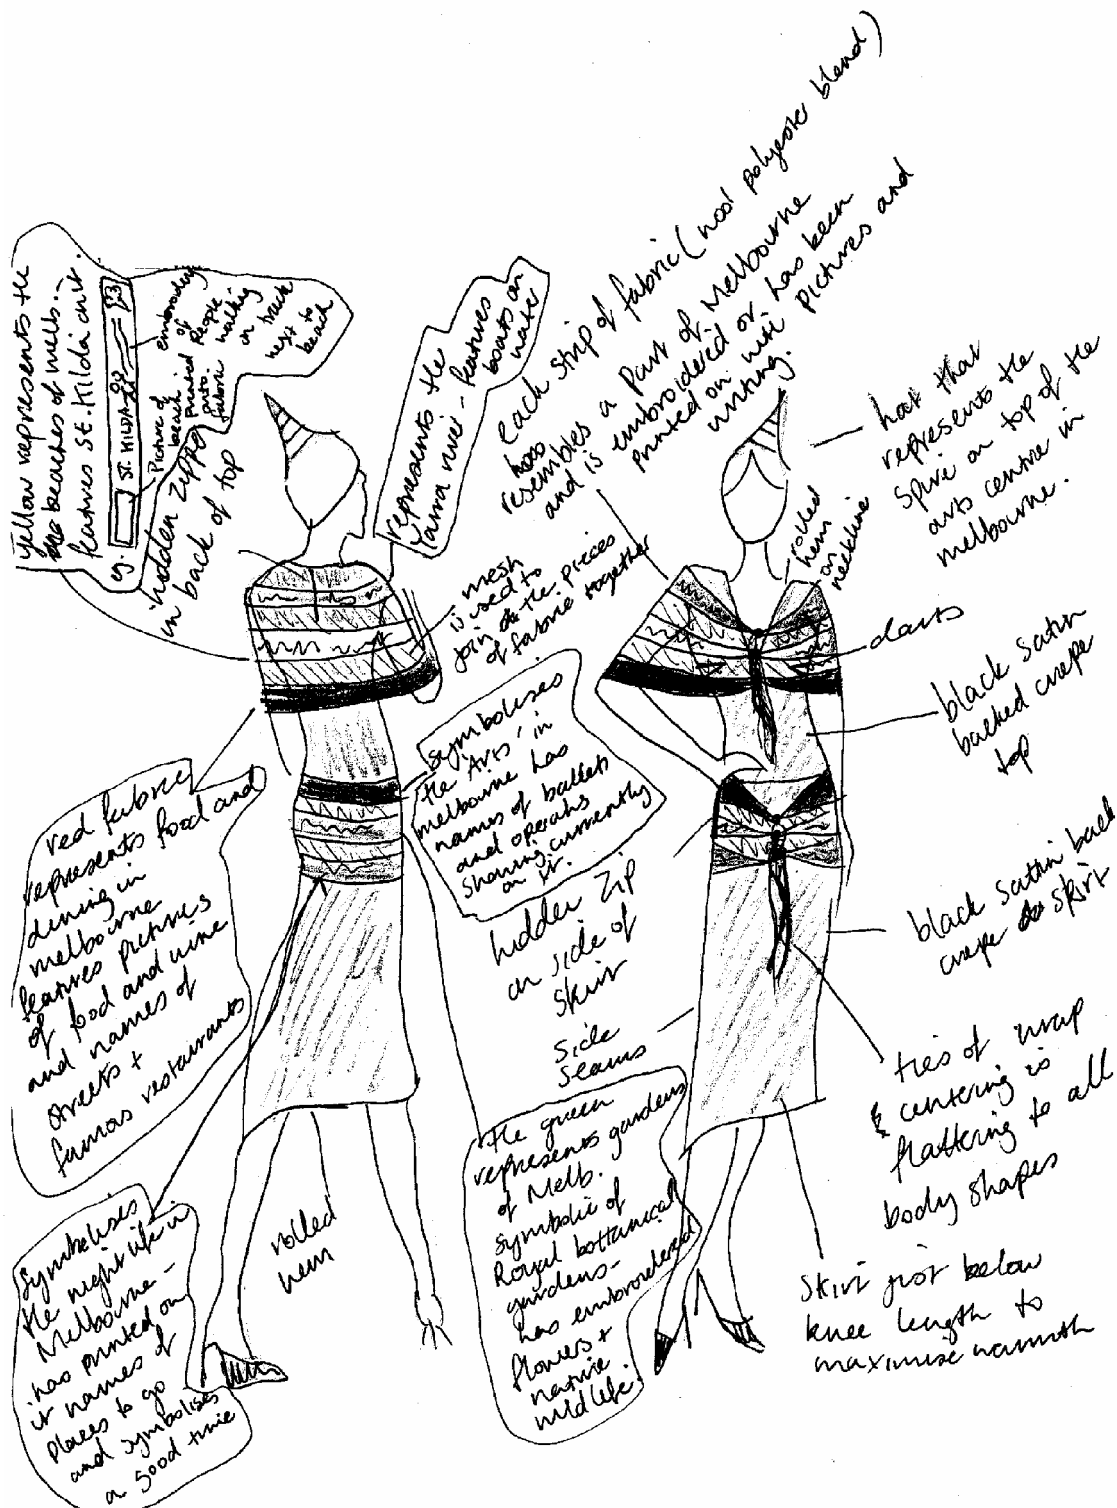 yellow represents the
beaches of melb...
features St. Kilda on it.
eg.
ST. KILDA
Picture of
beach
printed
onto
fabric
embroidery
of
people
walking
on track
next to
beach
hidden zipper
in back of top
represents the
Yarra river - features
boats on
water
each strip of fabric (wool polyester blend)
resembles a part of Melbourne
and is embroidered or has been
printed on with pictures and
writing.
hat that
represents the
spire on top of the
arts centre in
melbourne.
rolled
hem
on
neckline
mesh
is used to
join the pieces
of fabric together
darts
black satin
backed crepe
top
symbolises
the 'Arts' in
melbourne has
names of ballets
and operas
showing currently
on it.
red fabric
represents food and
dining in
melbourne
features pictures
of food and wine
and names of
streets +
famous restaurants
hidden zip
on side of
skirt
side
seams
black satin back
crepe skirt
ties of wrap
& centering is
flattering to all
body shapes
the green
represents gardens
of Melb.
symbolic of
Royal bottanical
gardens -
has embroidered
flowers +
native
wildlife.
rolled
hem
Symbolises
the night life in
Melbourne -
has printed on
it names of
places to go
and symbolises
a good time
Skirt just below
knee length to
maximise warmth